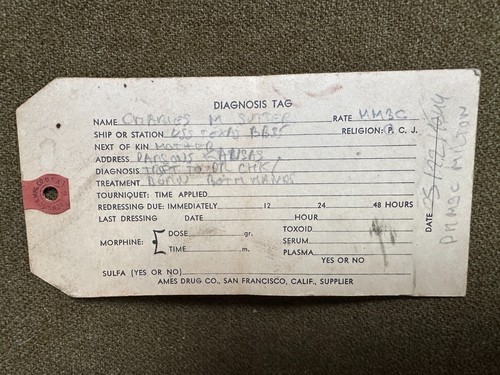 DIAGNOSIS TAG
NAME CHARLES M SUTER RATE MM3C
SHIP OR STATION USS TEXAS BB35 RELIGION: P. C. J.
NEXT OF KIN MOTHER
ADDRESS PARSONS KANSAS
DIAGNOSIS TO DR CHK
TREATMENT BOTH HANDS
TOURNIQUET: TIME APPLIED
REDRESSING DUE: IMMEDIATELY 12 24 48 HOURS
LAST DRESSING DATE HOUR
MORPHINE: DOSE gr. TOXOID
SERUM
TIME m. PLASMA
YES OR NO
SULFA (YES OR NO)
AMES DRUG CO., SAN FRANCISCO, CALIF., SUPPLIER
DATE 1944